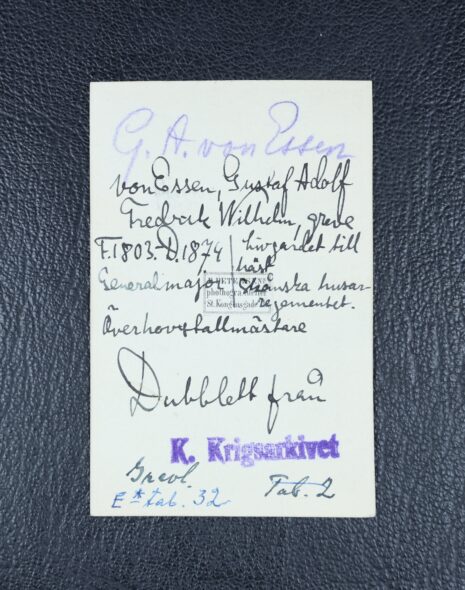 G. A. von Essen
von Essen, Gustaf Adolf
Fredrik Wilhelm, greve
F. 1803. D. 1874
livgardet till
häst
Generalmajor
Skånska husar-
regementet.
PETERSEN
St. Kongensgade
Överhovstallmästare
Dubblett från
K. Krigsarkivet
Grevl.
Tab. 2
E* tab. 32